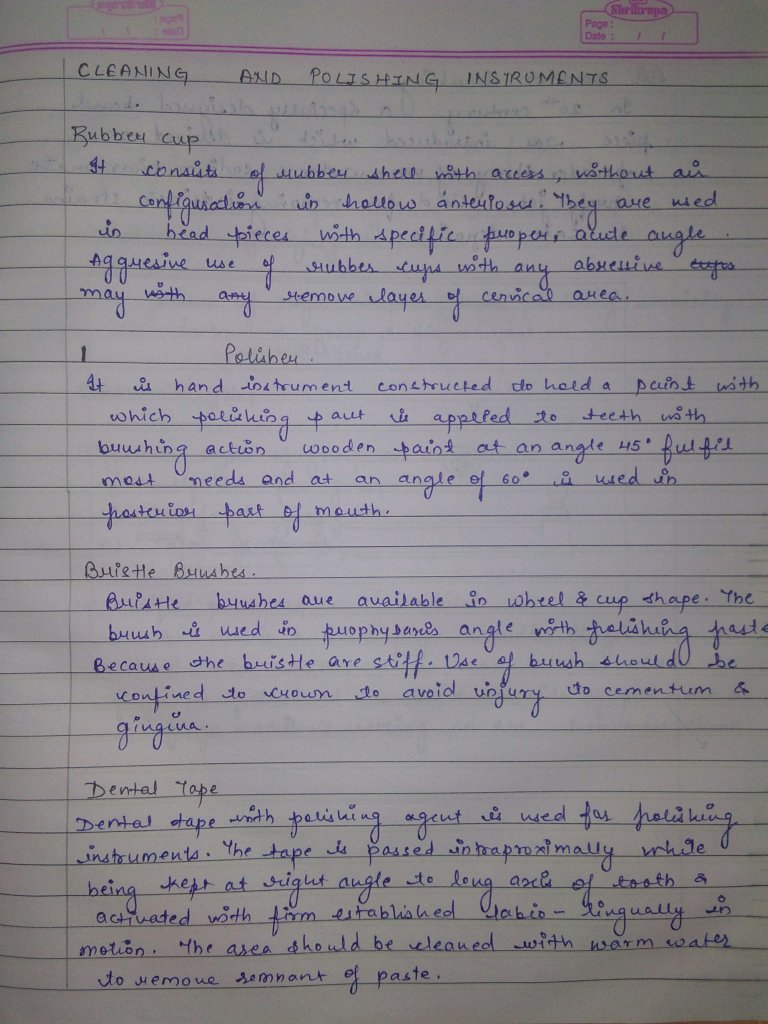 Shrikrupa
Page :
Date : / /
CLEANING AND POLISHING INSTRUMENTS
Rubber cup
It consists of rubber shell with access, without air
configuration in hollow anteriors. They are used
in head pieces with specific proper, acute angle.
Aggresive use of rubber cups with any abressive cups
may with any remove layer of cervical area.
Polisher.
It is hand instrument constructed to hold a paint with
which polishing paut is applied to teeth with
brushing action wooden paint at an angle 45° fulfil
most needs and at an angle of 60° is used in
posterior part of mouth.
Bristle Brushes.
Bristle brushes are available in wheel & cup shape. The
brush is used in prophylaxis angle with polishing paste
Because the bristle are stiff. Use of brush should be
confined to crown to avoid injury to cementum &
gingiva.
Dental Tape
Dental tape with polishing agent is used for polishing
instruments. The tape is passed intraproximally while
being kept at right angle to long axis of tooth &
activated with firm established labio - lingually in
motion. The area should be cleaned with warm water
to remove remnant of paste.